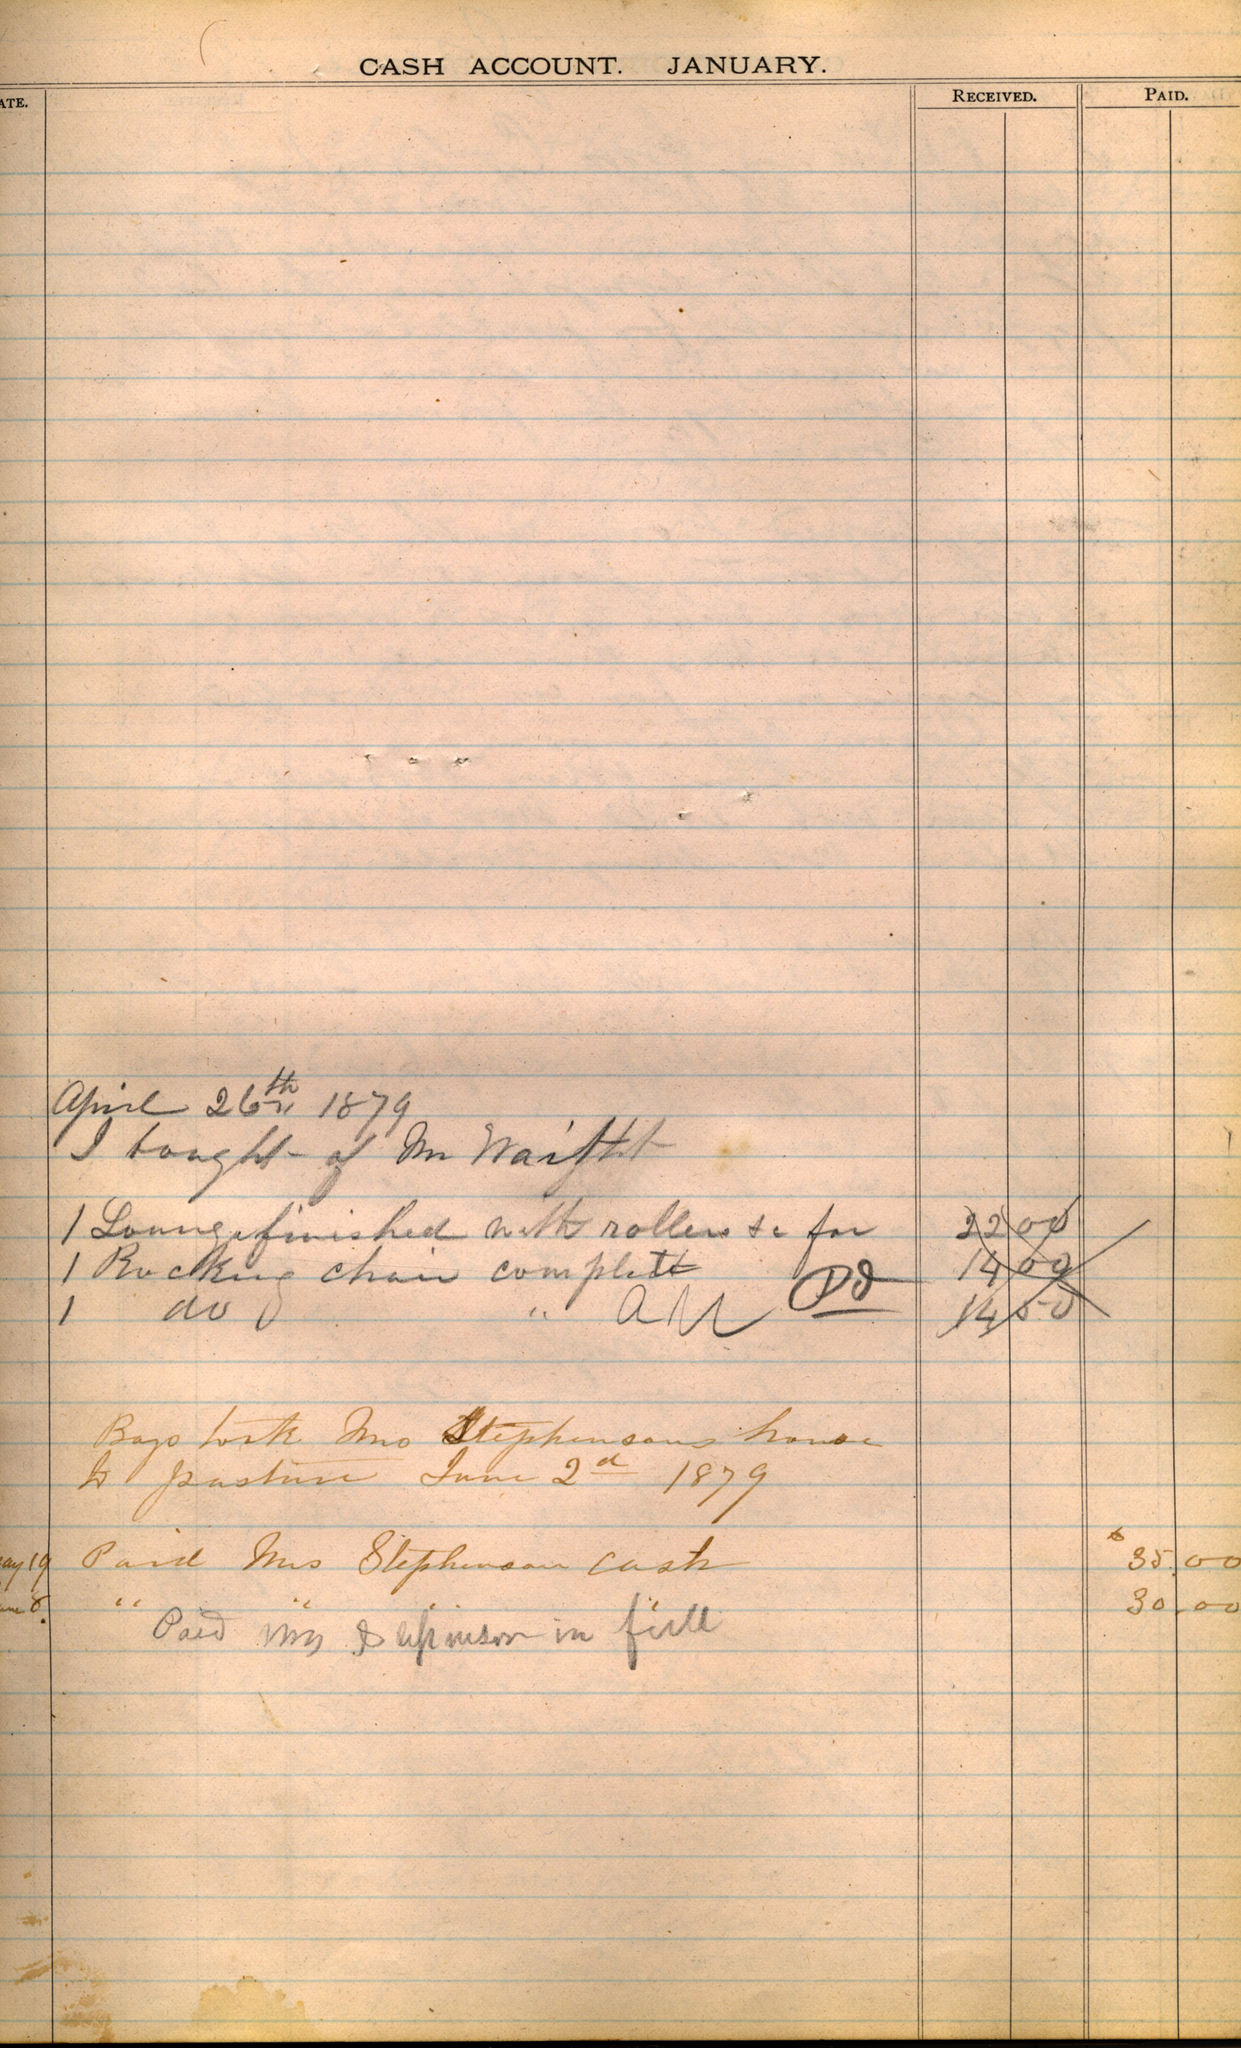 CASH ACCOUNT. JANUARY.
ATE. RECEIVED. PAID.
April 26th 1879
I bought of Mr
1 Lounge finished with rollers &c for 22 00
1 Rocking chair complett 14 00
1 do " All Pd 14 50
Boys took Mrs Stephensons horse
to pasture June 2d 1879
ay 19 Paid Mrs Stephenson cash $35.00
une 8. " " " " 30.00
Paid Mrs in full